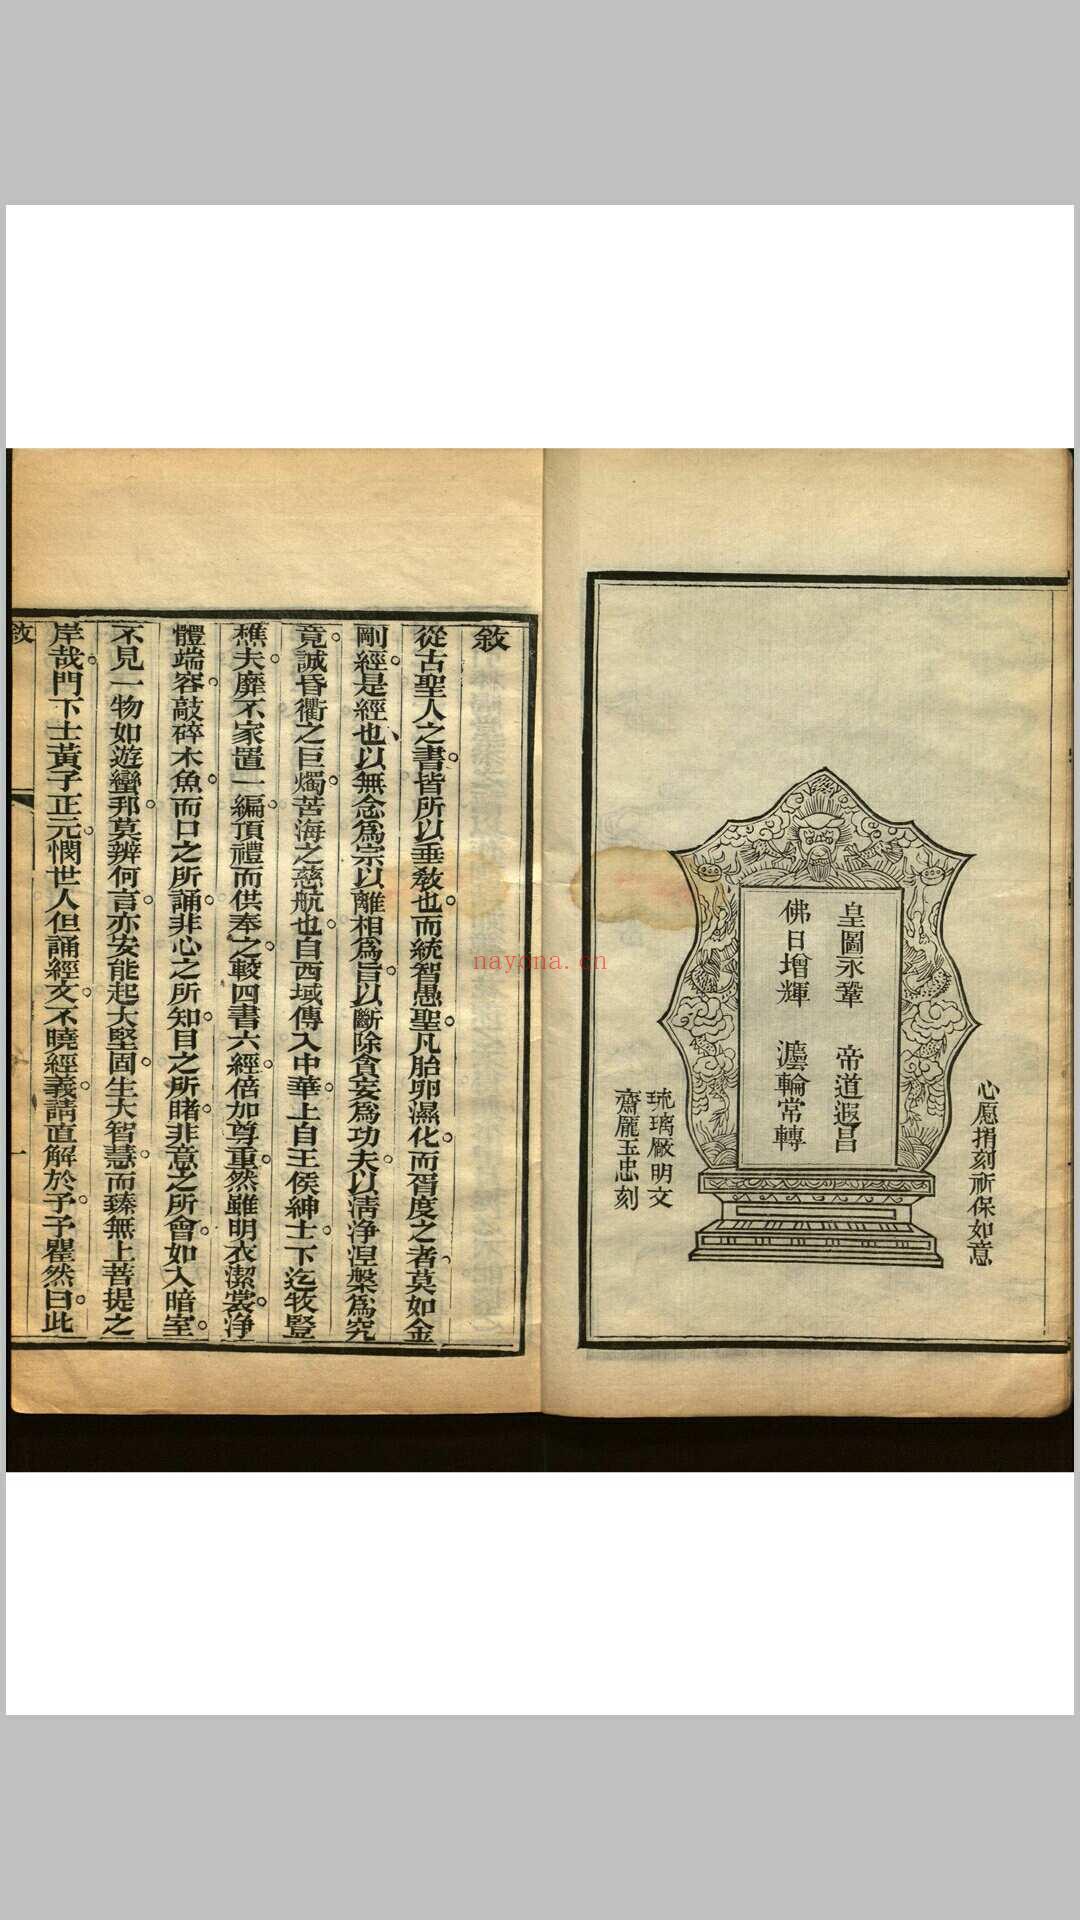 心愿捐刻祈保如意
皇圖永鞏 帝道遐昌
佛日增輝 灋輪常轉
琉璃厰明文
齋龐玉忠刻
敘
從古聖人之書皆所以垂敎也而統智愚聖凡胎卵濕化而胥度之者莫如金
剛經是經也以無念爲宗以離相爲旨以斷除貪妄爲功夫以淸淨涅槃爲究
竟誠昏衢之巨燭苦海之慈航也自西域傳入中華上自王侯紳士下迄牧豎
樵夫靡不家置一編頂禮而供奉之較四書六經倍加尊重然雖明衣潔裳淨
體端容敲碎木魚而口之所誦非心之所知目之所睹非意之所會如入暗室
不見一物如遊蠻邦莫辨何言亦安能起大堅固生大智慧而臻無上菩提之
岸哉門下士黃子正元憫世人但誦經文不曉經義請直解於予予瞿然曰此
敘
一
nayona.cn